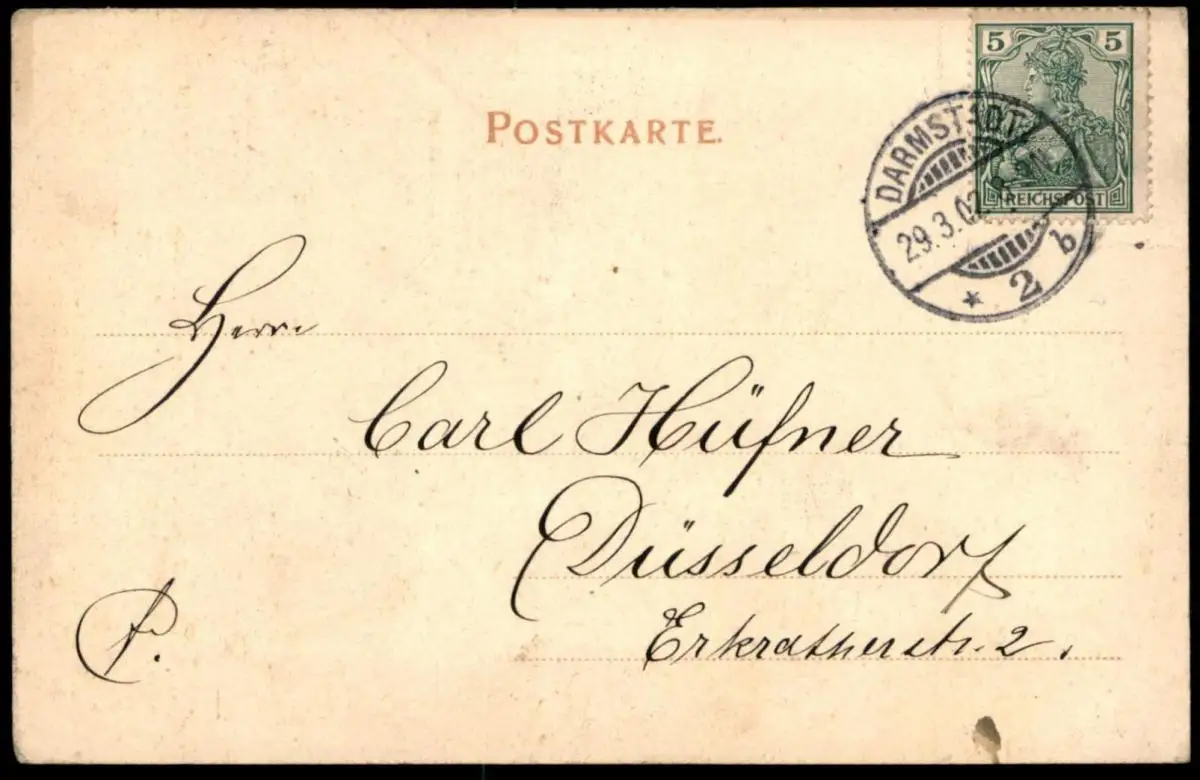 5 5
POSTKARTE.
REICHSPOST
DARMSTADT
29.3.02
* 2 b
Herrn
Carl Hüfner
Düsseldorf
Erkratherstr. 2.
F.